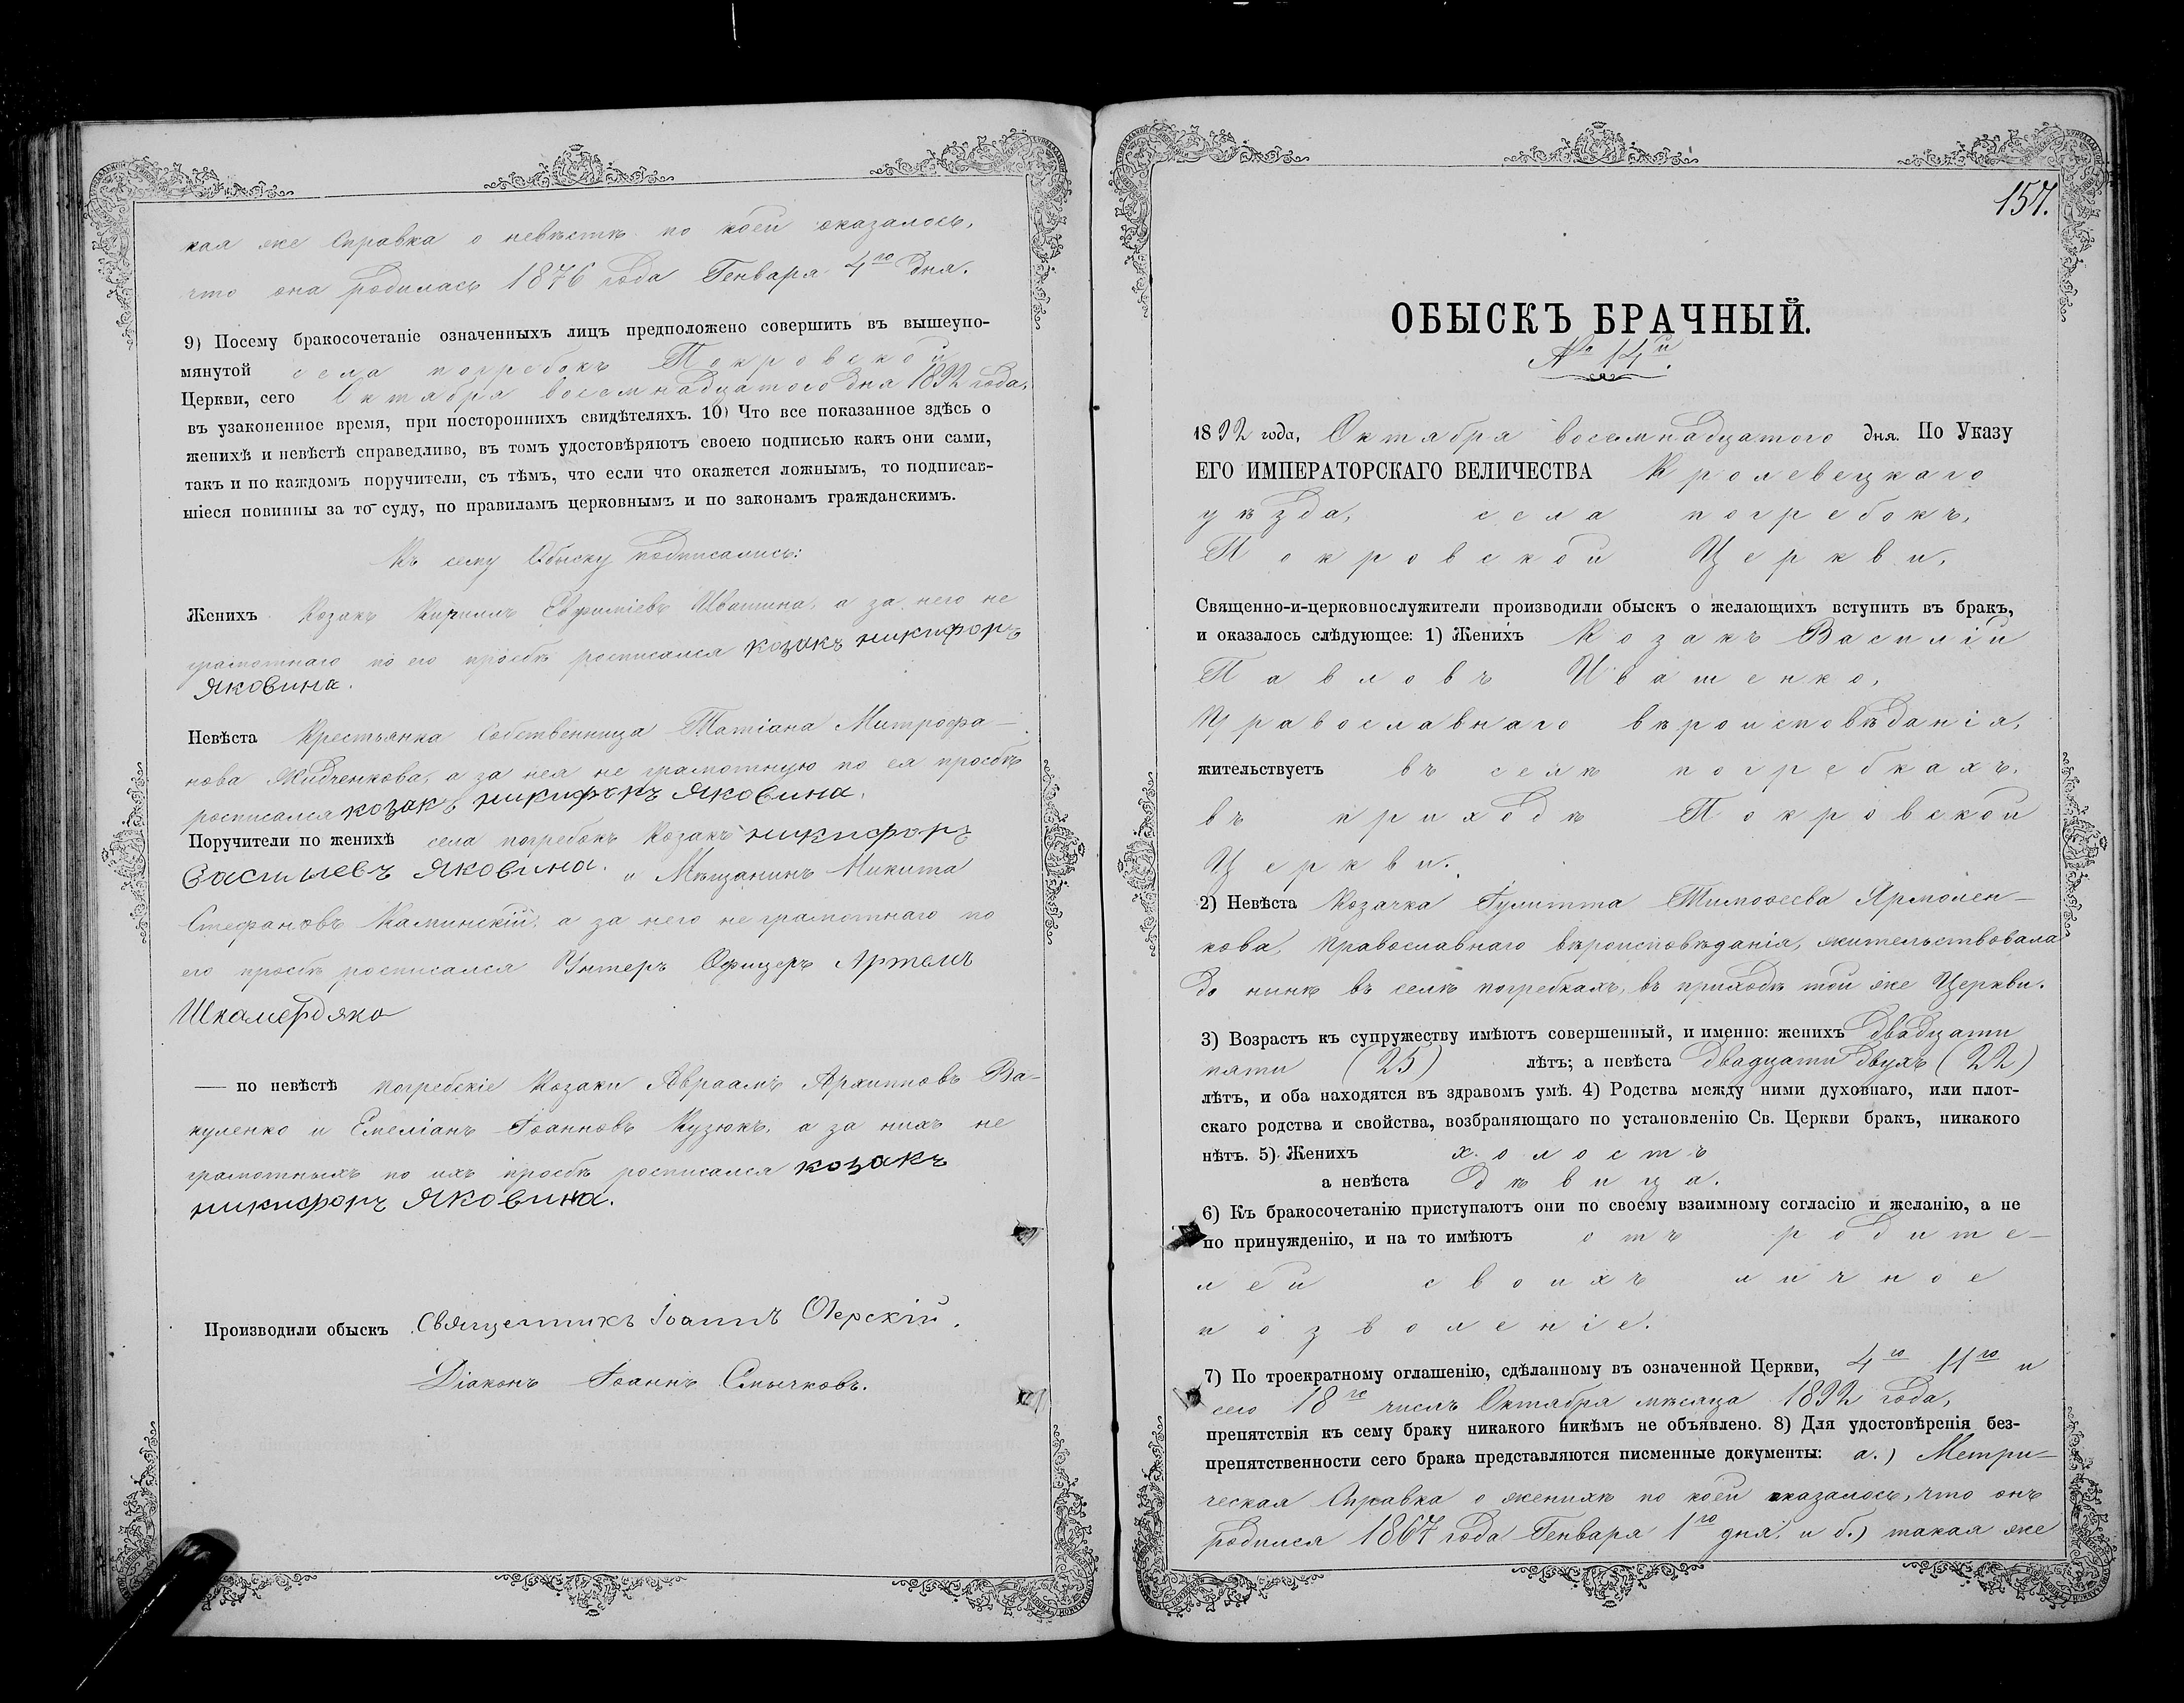 кая же Справка о невѣстѣ по коей оказалось,
что она родилась 1876 года Генваря 4го дня.
9) Посему бракосочетаніе означенныхъ лицъ предположено совершить въ вышеупо-
мянутой села погребокъ Покровской
Церкви, сего Октября восемнадцатого дня 1892 года,
въ узаконенное время, при постороннихъ свидѣтеляхъ. 10) Что все показанное здѣсь о
женихѣ и невѣстѣ справедливо, въ томъ удостовѣряютъ своею подписью какъ они сами,
такъ и по каждомъ поручители, съ тѣмъ, что если что окажется ложнымъ, то подписав-
шіеся повинны за то суду, по правиламъ церковнымъ и по законамъ гражданскимъ.
Къ сему Обыску подписались:
Женихъ Козакъ Кириллъ Евфиміевъ Ивашина, а за него не
грамотнаго по его просьбѣ росписался козакъ никифоръ
Яковина.
Невѣста Крестьянка Собственница Татіана Митрофа-
нова Жидченкова, а за нея не грамотную по ея просьбѣ
росписался козакъ никифоръ Яковина.
Поручители по женихѣ села погребокъ Козакъ никифоръ
Васильевъ Яковина. и Мѣщанинъ Никита
Стефановъ Каминскій, а за него не грамотнаго по
его просьбѣ росписался Унтеръ Офицеръ Артемъ
— по невѣстѣ погребскіе Козаки Авраамъ Архиповъ Ва-
куленко и Емеліанъ Іоанновъ Кузюкъ, а за нихъ не
грамотныхъ по ихъ просьбѣ росписался козакъ
никифоръ Яковина.
Производили обыскъ Священникъ Іоаннъ
Діаконъ Іоаннъ Смычковъ.
157.
ОБЫСКЪ БРАЧНЫЙ.
№ 14й.
1892 года, Октября восемнадцатого дня. По Указу
ЕГО ИМПЕРАТОРСКАГО ВЕЛИЧЕСТВА Кролевецкаго
уѣзда, села погребокъ,
Покровской Церкви,
Священно-и-церковнослужители производили обыскъ о желающихъ вступить въ бракъ,
и оказалось слѣдующее: 1) Женихъ Козакъ Василій
Павловъ Ивашенко,
Православнаго вѣроисповѣданія,
жительствуетъ въ селѣ погребкахъ,
въ приходѣ Покровской
Церкви.
2) Невѣста Козачка Іулитта Тимофеева Ярмолен-
кова, православнаго вѣроисповѣданія, жительствовала
до нинѣ въ селѣ погребкахъ, въ приходѣ той же Церкви.
3) Возрастъ къ супружеству имѣютъ совершенный, и именно: женихъ двадцати
пяти (25) лѣтъ; а невѣста двадцати двухъ (22)
лѣтъ, и оба находятся въ здравомъ умѣ. 4) Родства между ними духовнаго, или плот-
скаго родства и свойства, возбраняющаго по установленію Св. Церкви бракъ, никакого
нѣтъ. 5) Женихъ холостъ
а невѣста дѣвица.
6) Къ бракосочетанію приступаютъ они по своему взаимному согласію и желанію, а не
по принужденію, и на то имѣютъ отъ родите-
лей своихъ личное
позволеніе.
7) По троекратному оглашенію, сдѣланному въ означенной Церкви, 4го 11го и
сего 18го числъ Октября мѣсяца 1892 года,
препятствія къ сему браку никакого никѣмъ не объявлено. 8) Для удостовѣренія без-
препятственности сего брака представляются писменные документы: а.) Метри-
ческая Справка о женихѣ по коей оказалось, что онъ
родился 1867 года Генваря 1го дня, и б.) такая же